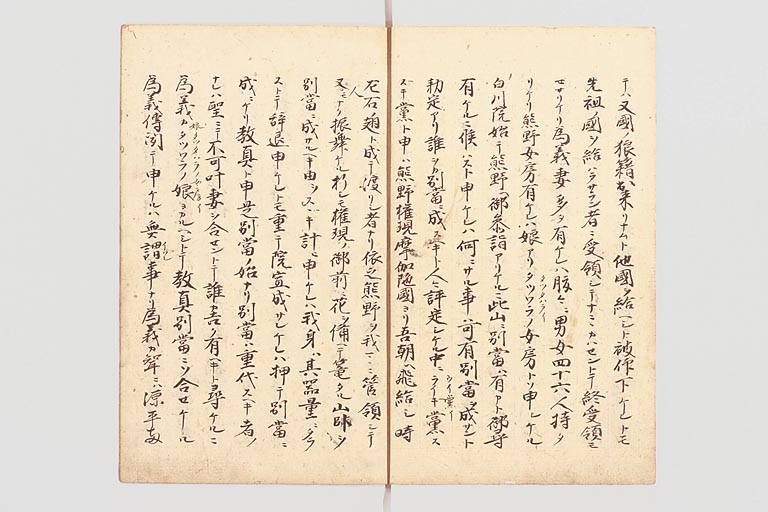 テハ又國ノ狼籍出来リナムト他國ヲ給ヘシト被仰下ケレトモ
先祖ノ國ヲ給ハラサラン者ニ受領シテナニカハセントテ終受領ニ
セサリケリ為義妻多ク有ケレハ腹々ニ男女四十六人持タ
リケリ熊野女房有ケレハ娘アリタツワラノ女房トソ申シケル
白川院始テ熊野ヘ御参詣アリケルニ此山ニ別當ハ有ヤト御尋
有ケルニ候ハスト申ケレハ何ニサル事ハ可有別當ヲ成サント
勅定アリ誰ヲ別當ニ成スヘキト人々評定シケル中ニライキ黨ス
スキ黨ト申ハ熊野権現摩伽陁國ヨリ吾朝ヘ飛給シ時
左右ノ翅ト成テ渡リシ者ナリ依之熊野ヲ我マヽニ管領シテ
又人モナク振舞ケル折シモ権現ノ御前ニ花ヲ備ヘテ篭タル山臥ヲ
別當ニ成サルヘキ由ヲスヽキ計ヒ申ケレハ我身ハ其器量ニタラ
ストテ辞退申ケレトモ重テ院宣成サレケレハ押テ別當ニ
成ニケリ教真ト申是別當ノ始ナリ別當ハ重代スヘキ者ノ
ナレハ聖ニテハ不可叶妻ヲ合セントテ誰カ吉ク有ヘキト尋ケルニ
為義カタツワラノ娘ヨカルヘシトテ教真別當ニソ合セケル
為義傳聞テ申ケルハ無謂事ナリ為義カ聟ニハ源平両